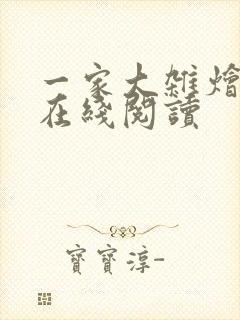 一家大雜燴
在綫閱讀
寶寶淳-